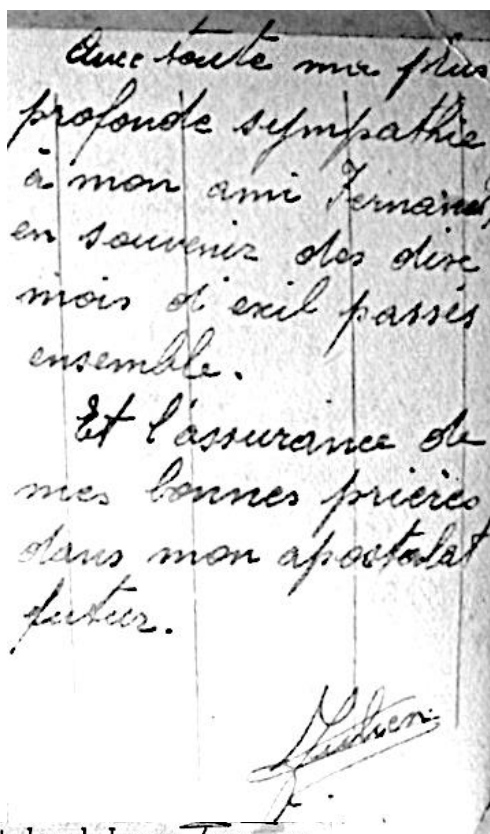 Avec toute ma plus
profonde sympathie
à mon ami Fernand,
en souvenir des dix
mois d'exil passés
ensemble.
Et l'assurance de
mes bonnes prières
dans mon apostolat
futur.
Julien